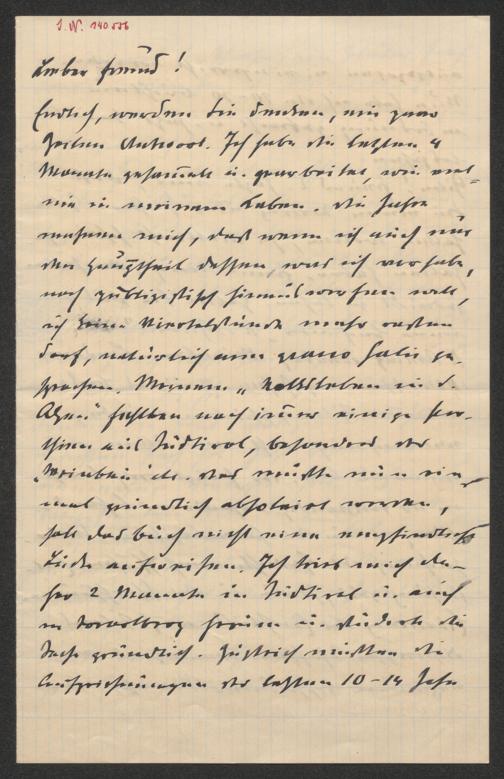 I. N. 140.556
Lieber Freund!
Endlich, werden Sie denken, ein paar
Zeilen Antwort. Ich habe die letzten 4
Monate gesammelt u. gearbeitet, wie noch
nie in meinem Leben. Die Jahre
mahnen mich, daß wenn ich auch nur
den Haupttheil dessen, was ich vorhabe,
noch publizistisch hinauswerfen will,
ich keine Viertelstunde mehr rasten
darf, natürlich cum grano salis ge-
sprochen. Meinem „Volksleben in d.
Alpen" fehlten noch immer einige Par-
thien aus Südtirol, besonders der
„Weinbau" etc. Das mußte nun ein-
mal gründlich absolvirt werden,
soll das Buch nicht eine empfindliche
Lücke aufweisen. Ich trieb mich da-
her 2 Monate in Südtirol u. auch
in Vorarlberg herum u. studirte die
Sache gründlich. Zugleich mußten die
Aufzeichnungen der letzten 10-14 Jahre